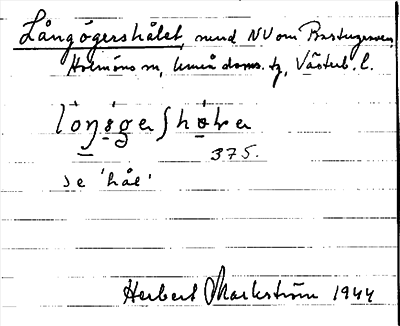 Långögershålet, sund NV om Bastugernen,
Holmöns sn, Umeå doms. tg, Västerb. l.
lòŋǿgerʃhø̀ḷe
375.
se 'hål'
Herbert Markström 1944